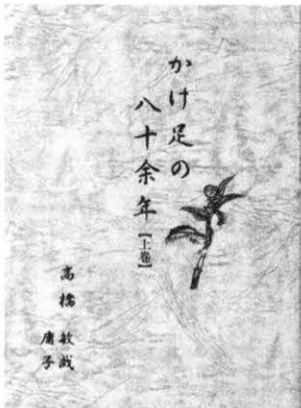 かけ足の
八十余年【上巻】
高橋敏哉
庸子